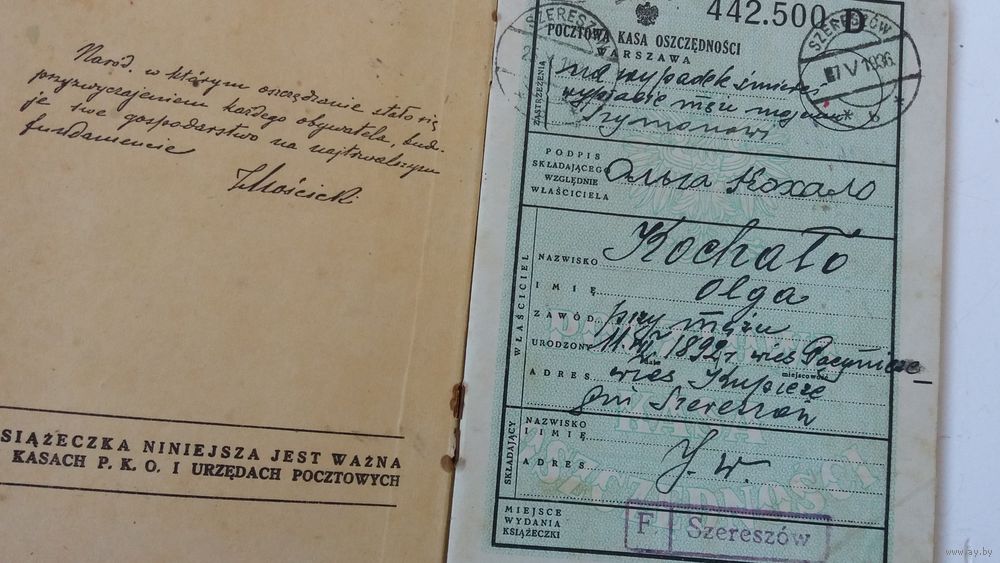 Naród, w którym oszczędzanie stało się
przyzwyczajeniem każdego obywatela, bud.
je swe gospodarstwo na najtrwalszym
fundamencie
IMościcki
SIĄŻECZKA NINIEJSZA JEST WAŻNA
KASACH P. K. O. I URZĘDACH POCZTOWYCH
442.500 D
POCZTOWA KASA OSZCZĘDNOŚCI
WARSZAWA
SZERESZ
SZERESZÓW
7 V 1936
ZASTRZEŻENIA
na wypadek śmierci
wypłacić mężu mojemu
Szymonowi
PODPIS
SKŁADAJĄCEGO
WZGLĘDNIE
WŁAŚCICIELA
Ольга Кохало
WŁAŚCICIEL
NAZWISKO Kochało
IMIĘ Olga
ZAWÓD przy mężu
URODZONY 11. 1892 r wieś
data miejscowość
ADRES wieś Kupicze
gm Szereszów
SKŁADAJĄCY
NAZWISKO
IMIĘ
J. w.
ADRES
MIEJSCE
WYDANIA
KSIĄŻECZKI
F Szereszów
www.ay.by